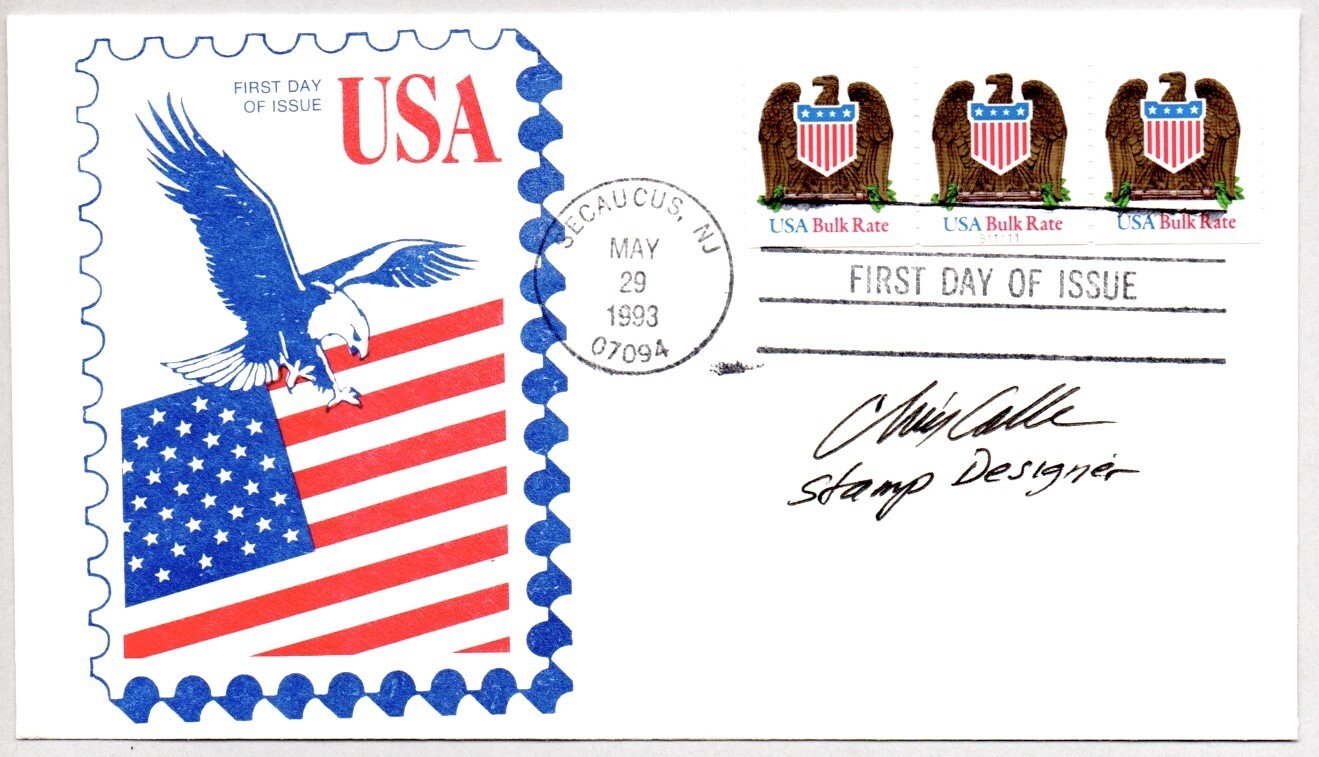 FIRST DAY
OF ISSUE
USA
USA Bulk Rate
USA Bulk Rate
USA Bulk Rate
S11111
SECAUCUS, NJ
MAY
29
1993
07094
FIRST DAY OF ISSUE
Chris Calle
Stamp Designer